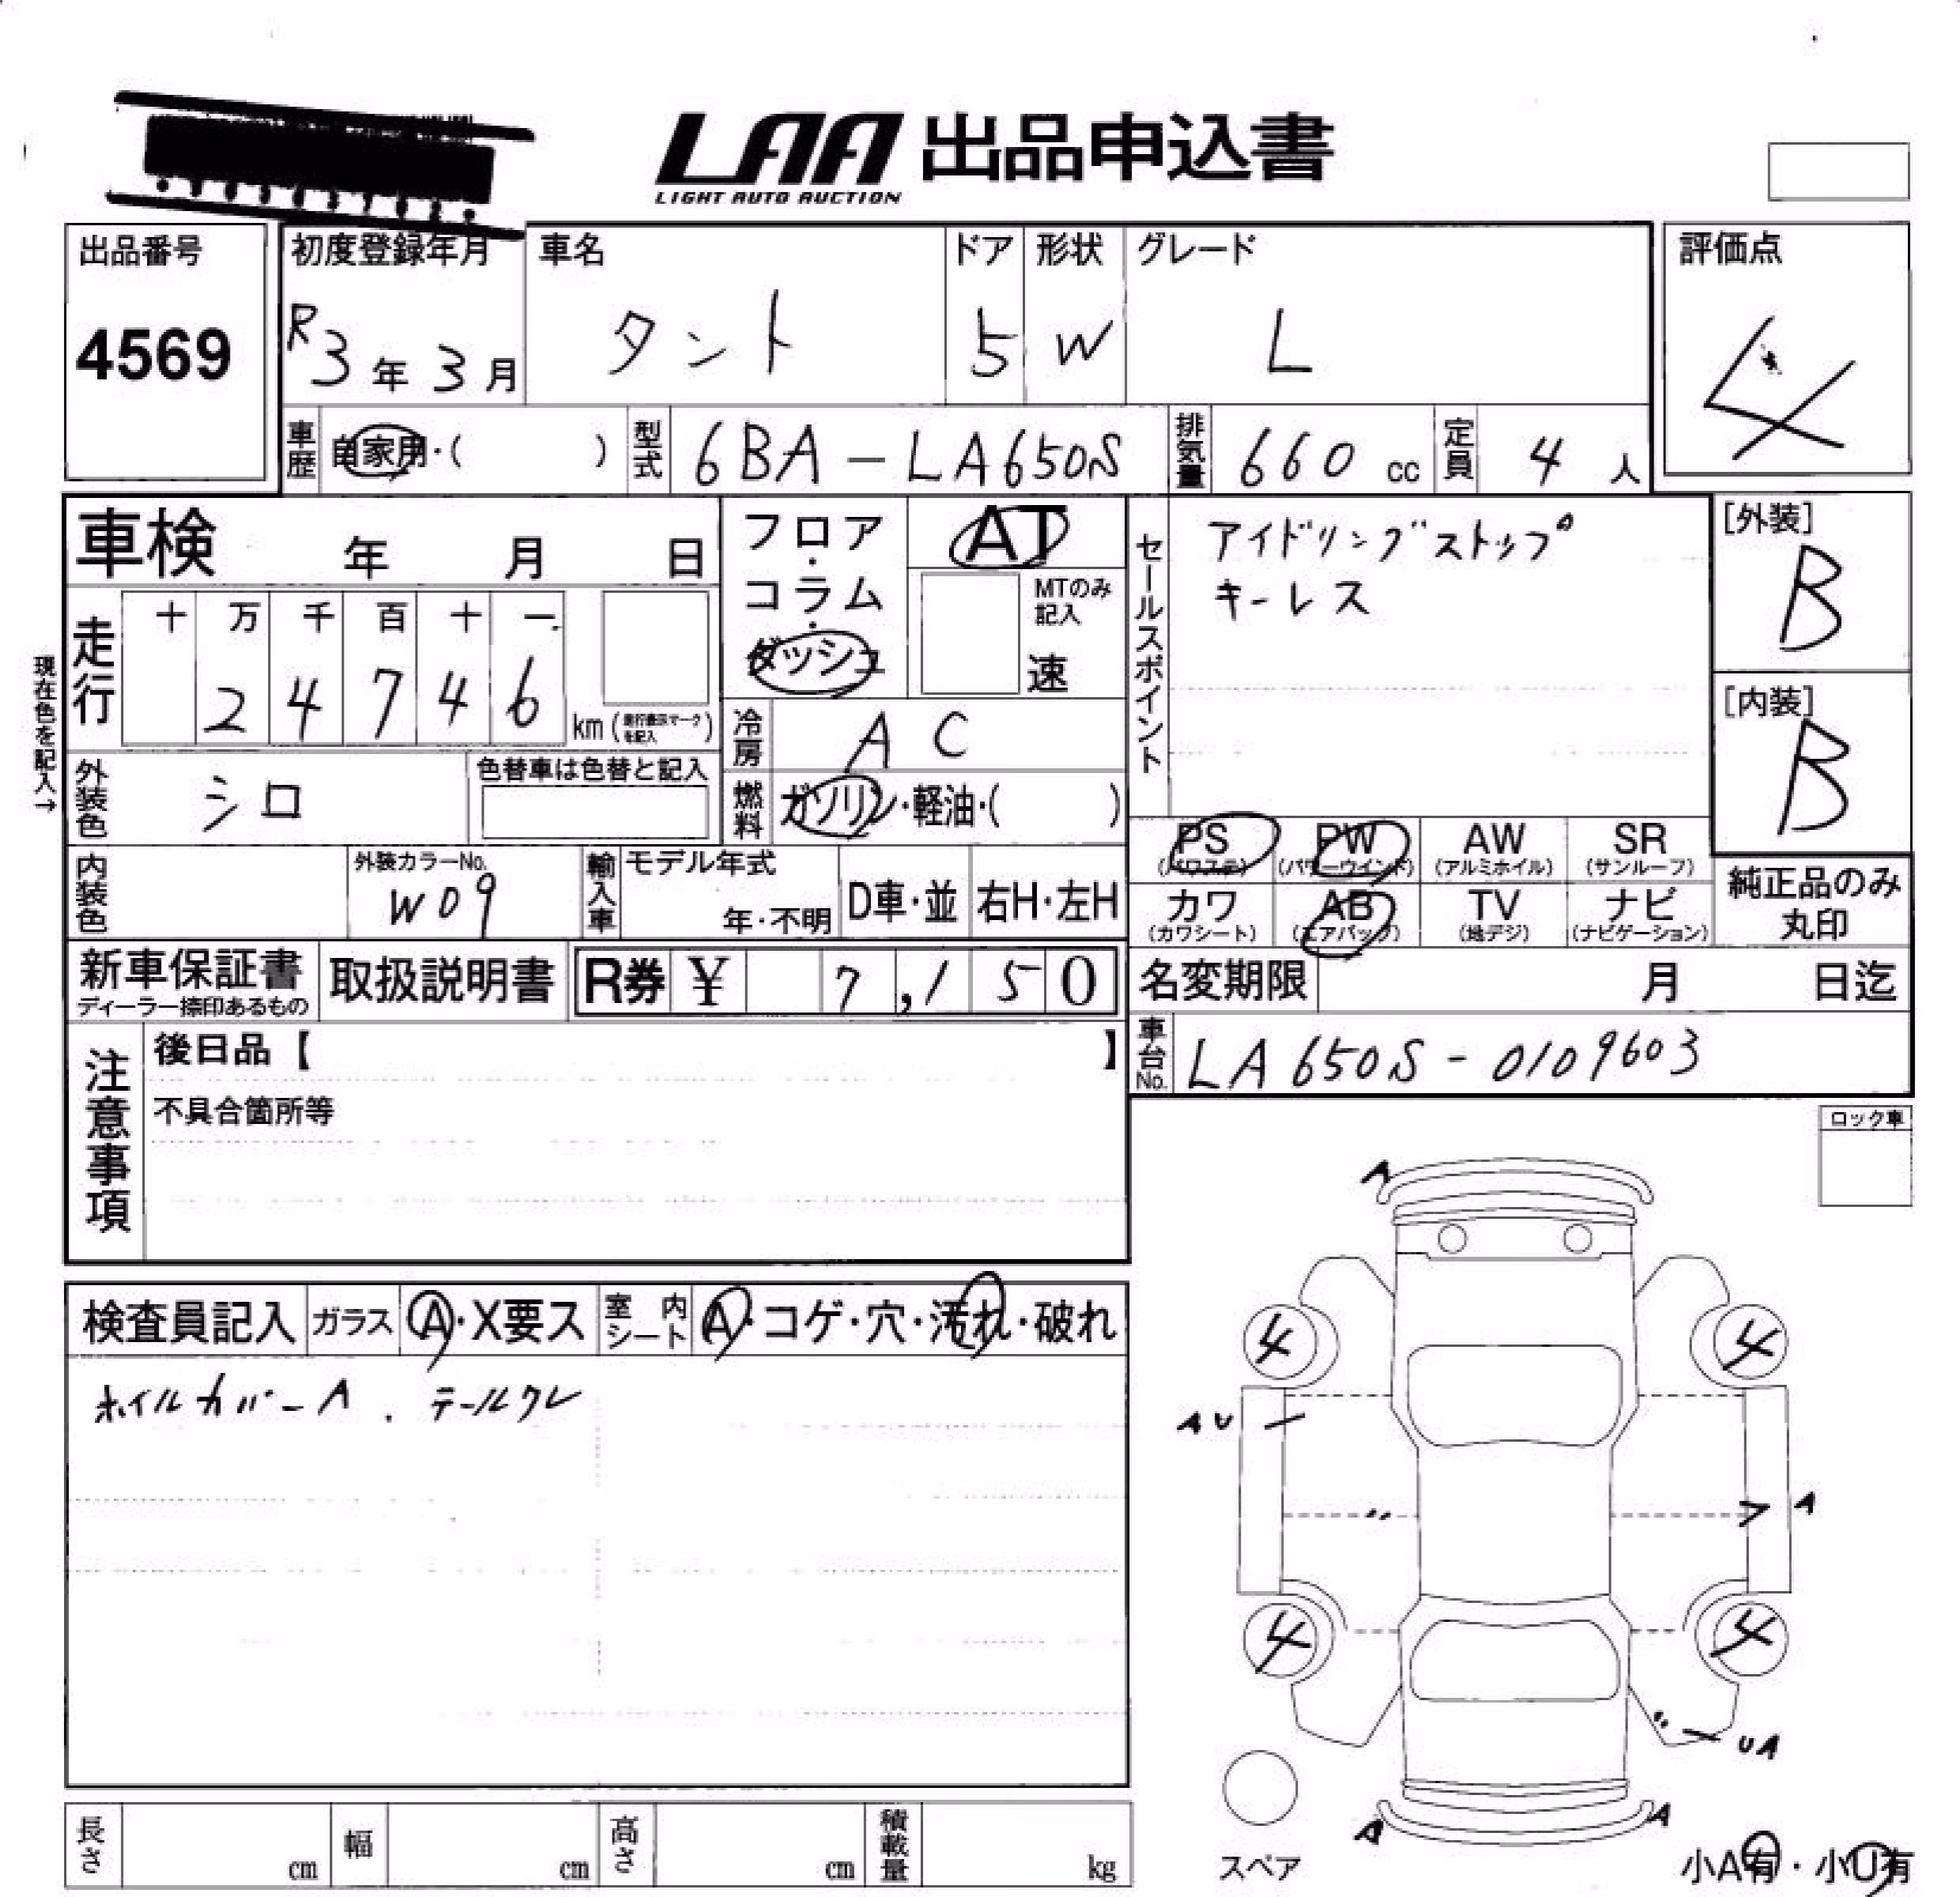 LAA 出品申込書
LIGHT AUTO AUCTION
出品番号 初度登録年月 車名 ドア 形状 グレード 評価点
4569 R3年3月 タント 5 W L 4
車歴 自家用・( ) 型式 6BA-LA650S 排気量 660cc 定員 4人
車検 年 月 日
フロア・コラム・ダッシュ
AT
MTのみ記入
速
セールスポイント
アイドリングストップ
キーレス
[外装]
B
[内装]
B
現在色を記入→
走行 十 万 千 百 十 一
2 4 7 4 6 km (走行表示マークを記入)
冷房 AC
外装色 シロ 色替車は色替と記入
燃料 ガソリン・軽油・( )
PS (パワステ) PW (パワーウインド) AW (アルミホイル) SR (サンルーフ)
カワ (カワシート) AB (エアバッグ) TV (地デジ) ナビ (ナビゲーション)
純正品のみ
丸印
内装色 外装カラーNo. W09 輸入車 モデル年式 年・不明 D車・並 右H・左H
新車保証書 ディーラー捺印あるもの 取扱説明書 R券 ¥ 7,150
名変期限 月 日迄
車台No. LA650S-0109603
注意事項
後日品【 】
不具合箇所等
ロック車
検査員記入 ガラス A・X要ス 室内シート A・コゲ・穴・汚れ・破れ
ホイルカバーA. テールワレ
A
4 4
AU
A
4 4
UA
A A
スペア
小A有・小U有
長さ cm 幅 cm 高さ cm 積載量 kg